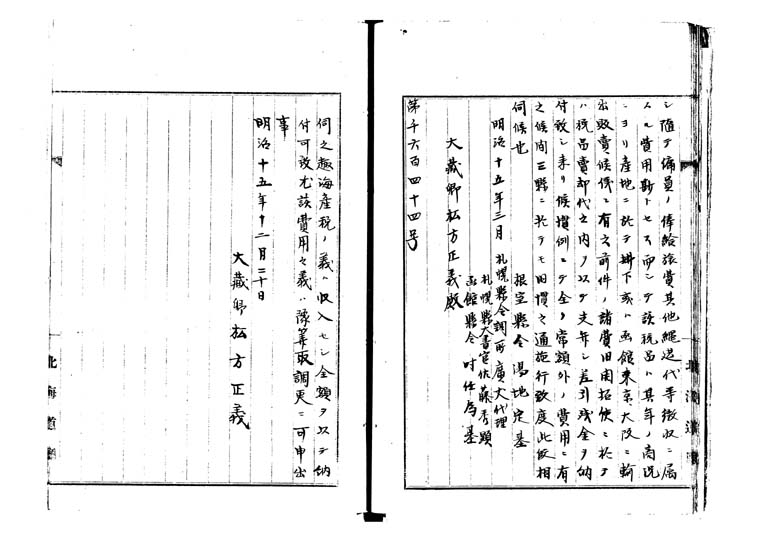 シ随テ傭員ノ俸給旅費其他縄莚代等徴収ニ属
スル費用尠トセス而シテ該税品ハ其年ノ商況
ニヨリ産地ニ於テ拂下或ハ函館東京大阪ニ輸
出販賣候儀ニ有之前件ノ諸費旧開拓使ニ於テ
ハ税品賣却代之内ヲ以テ支弁シ差引残金ヲ納
付致シ来リ候慣例ニテ全ク常額外ノ費用ニ有
之候間三縣ニ於テモ旧慣之通施行致度此段相
伺候也
明治十五年三月
札幌縣令調所廣丈代理
札幌縣大書官佐藤秀顕
函館縣令時任為基
根室縣令湯地定基
大蔵卿松方正義殿
第千六百四十四号
伺之趣海産税ノ義ハ収入セシ全額ヲ以テ納
付可致尤該費用之義ハ豫算取調更ニ可申出
事
明治十五年十二月二十日
大蔵卿松方正義
北海道